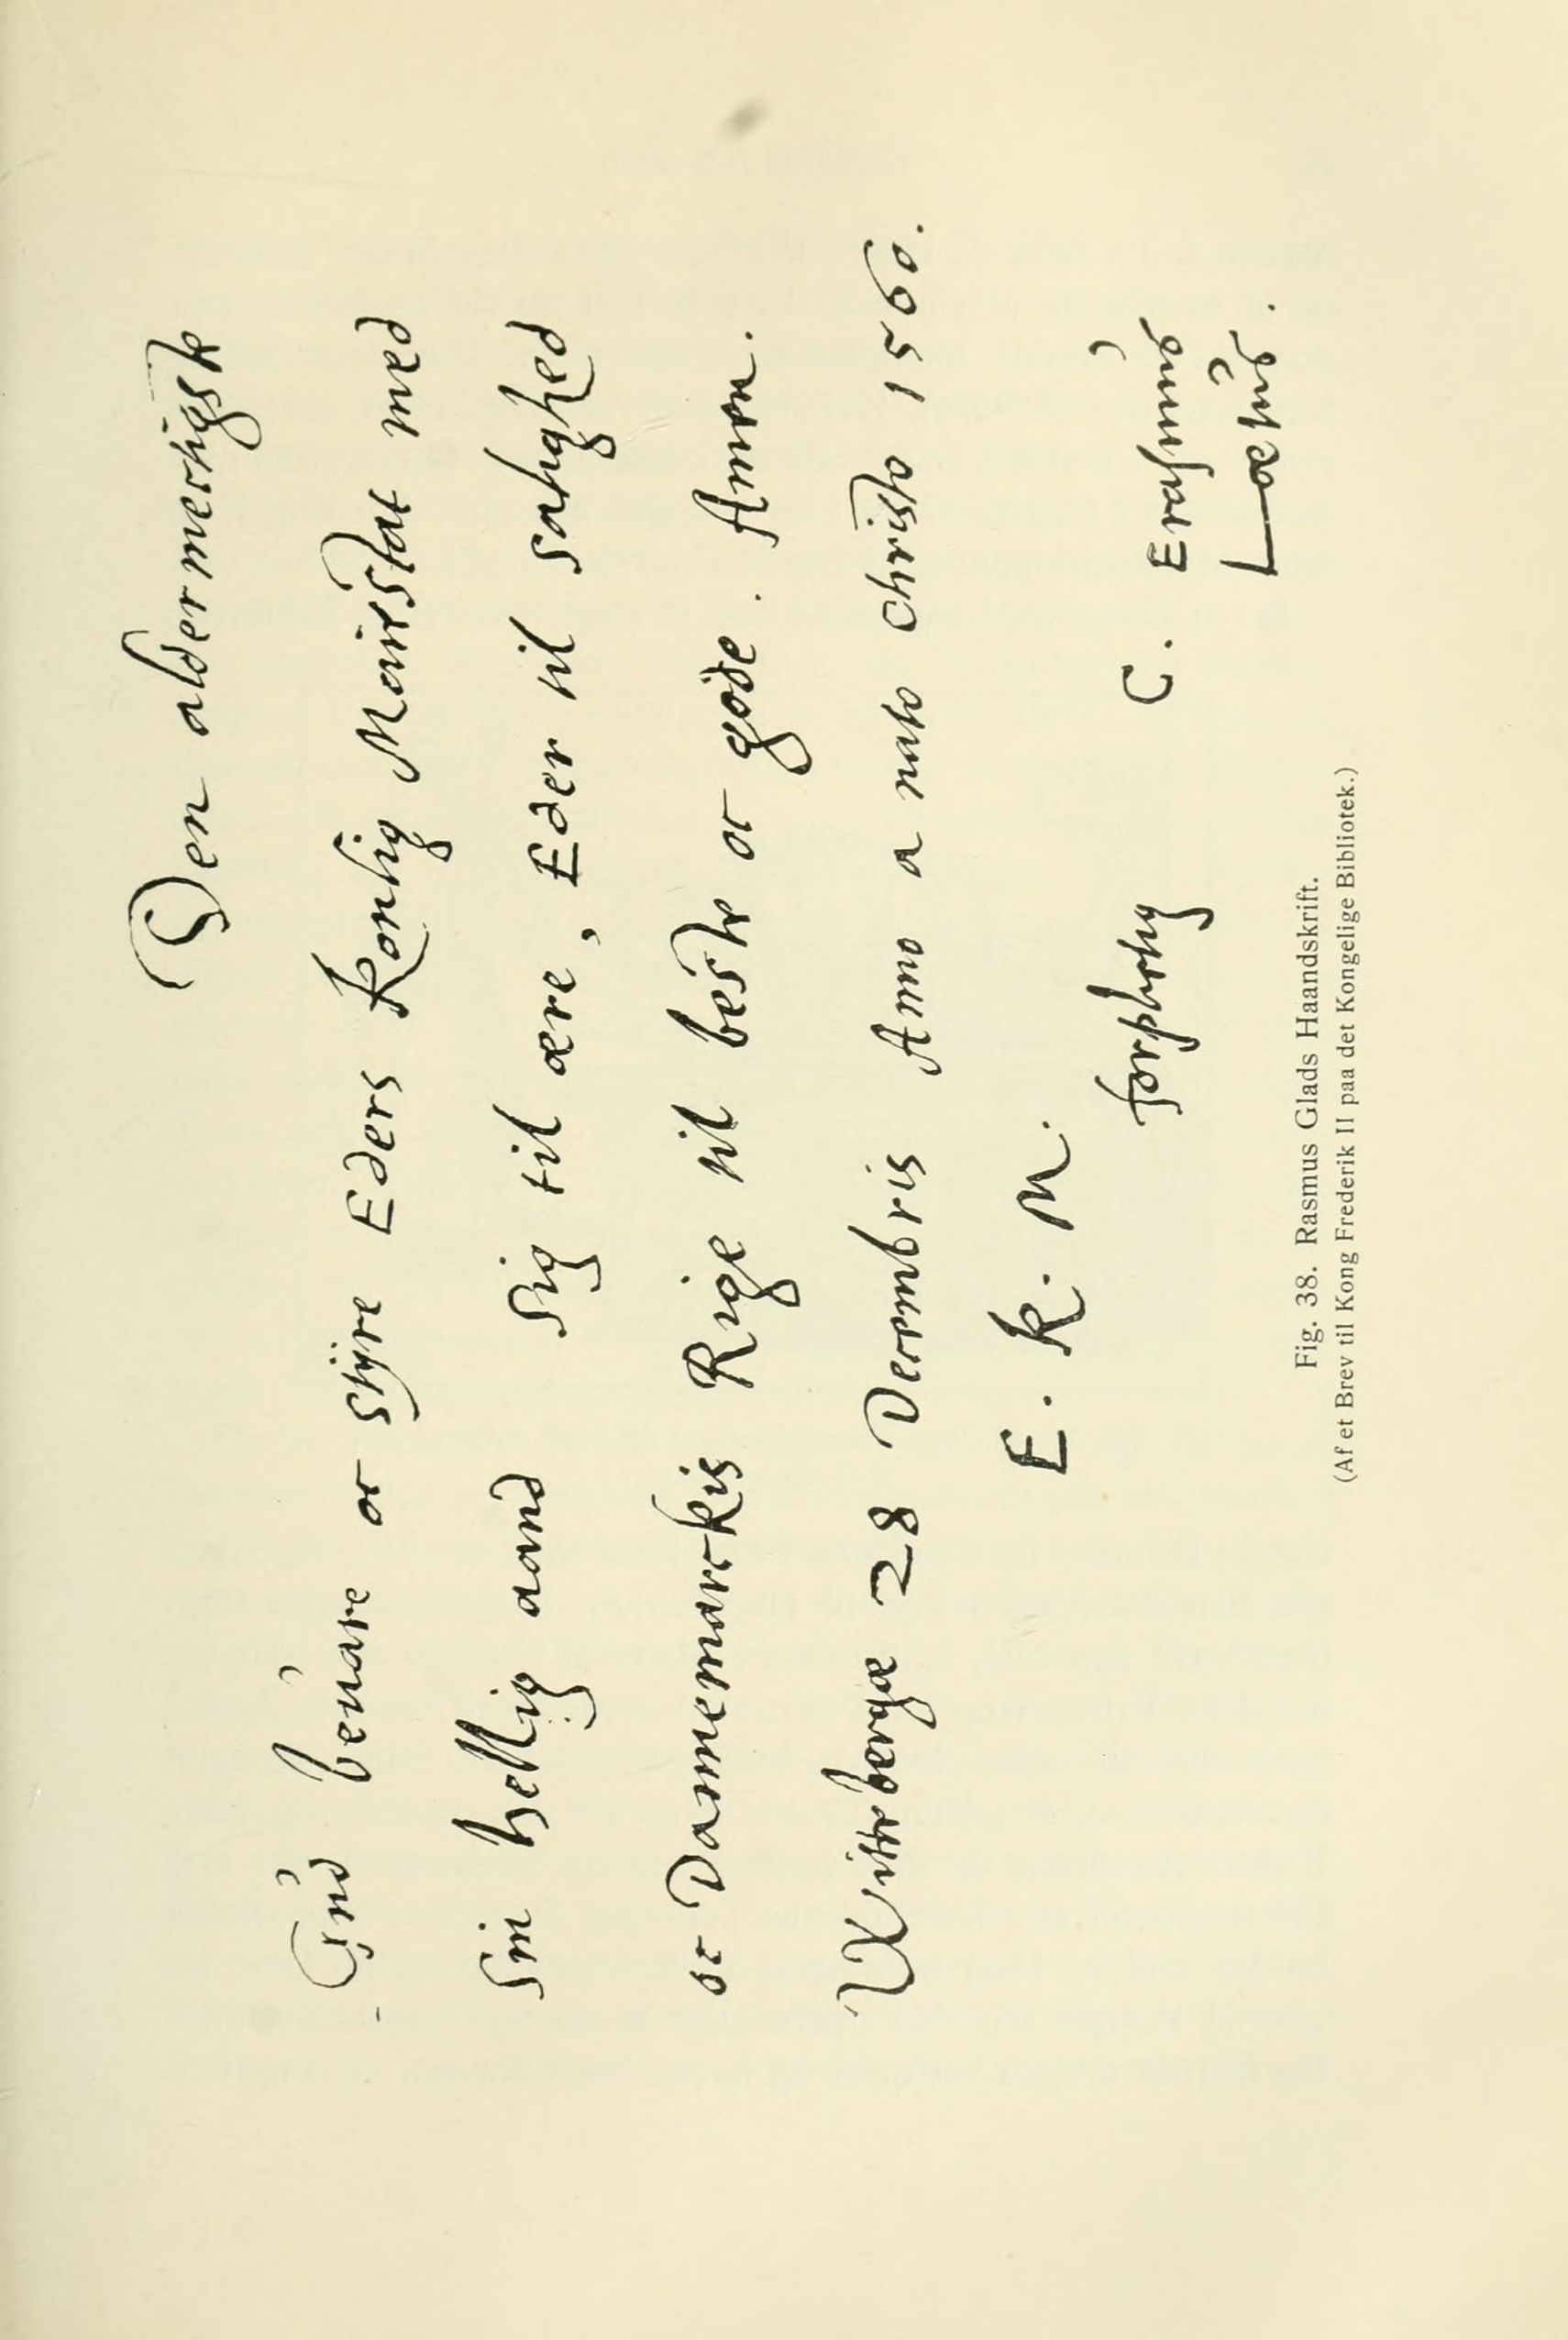 Den aldermectigste
Gud beuare oc styre Eders Konlig Maiestat med
sin hellig aand sig til ære, Eder til salighed
oc Dannemarckis Rige til beste oc gode. Amen.
Witebergæ 28 Decembris Anno a nato Christo 1560.
E. K. M.
C. Erasmus
Lætus.
Fig. 38. Rasmus Glads Haandskrift.
(Af et Brev til Kong Frederik II paa det Kongelige Bibliotek.)